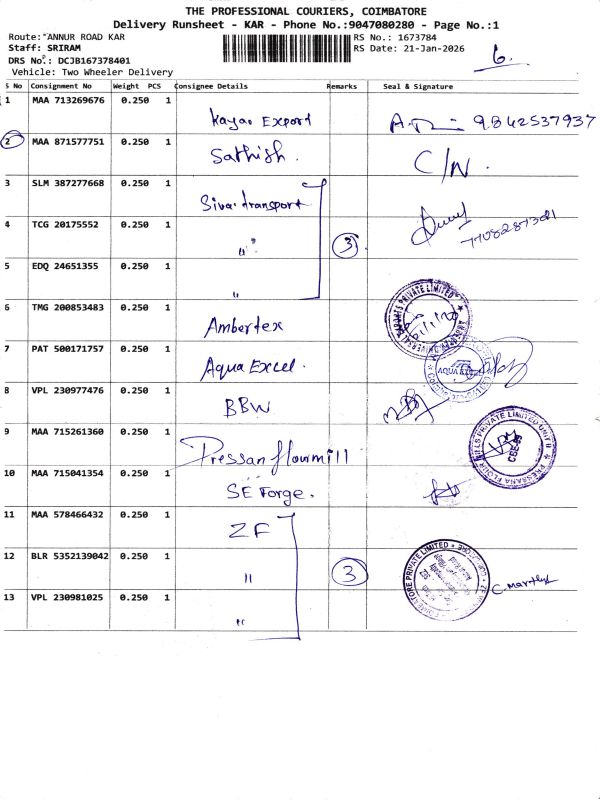 THE PROFESSIONAL COURIERS, COIMBATORE
Delivery Runsheet - KAR - Phone No.:9047080280 - Page No.:1
Route: ANNUR ROAD KAR RS No.: 1673784
Staff: SRIRAM RS Date: 21-Jan-2026 6.
DRS No.: DCJB167378401
Vehicle: Two Wheeler Delivery
S No Consignment No Weight PCS Consignee Details Remarks Seal & Signature
1 MAA 713269676 0.250 1 Export 9842537937
2 MAA 871577751 0.250 1 Sathish. C/N.
3 SLM 387277668 0.250 1 Siva transport
4 TCG 20175552 0.250 1 " 3
5 EDQ 24651355 0.250 1 "
6 TMG 200853483 0.250 1 Ambertex
7 PAT 500171757 0.250 1 Aqua Excel.
8 VPL 230977476 0.250 1 BBW
9 MAA 715261360 0.250 1 Pressan flourmill
10 MAA 715041354 0.250 1 SE Forge.
11 MAA 578466432 0.250 1 ZF
12 BLR 5352139042 0.250 1 " 3
13 VPL 230981025 0.250 1 "